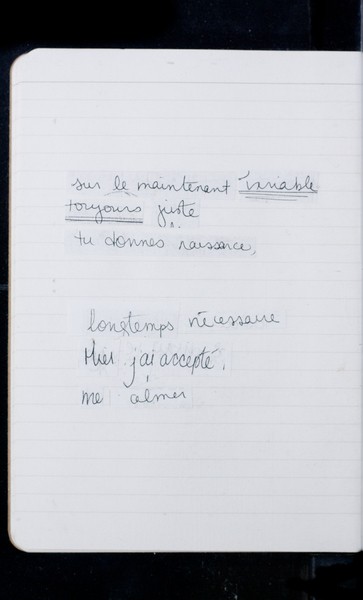 sur le maintenant variable
toujours juste
tu donnes naissance,
longtemps nécessaire
Hier j'ai accepté,
me calmer